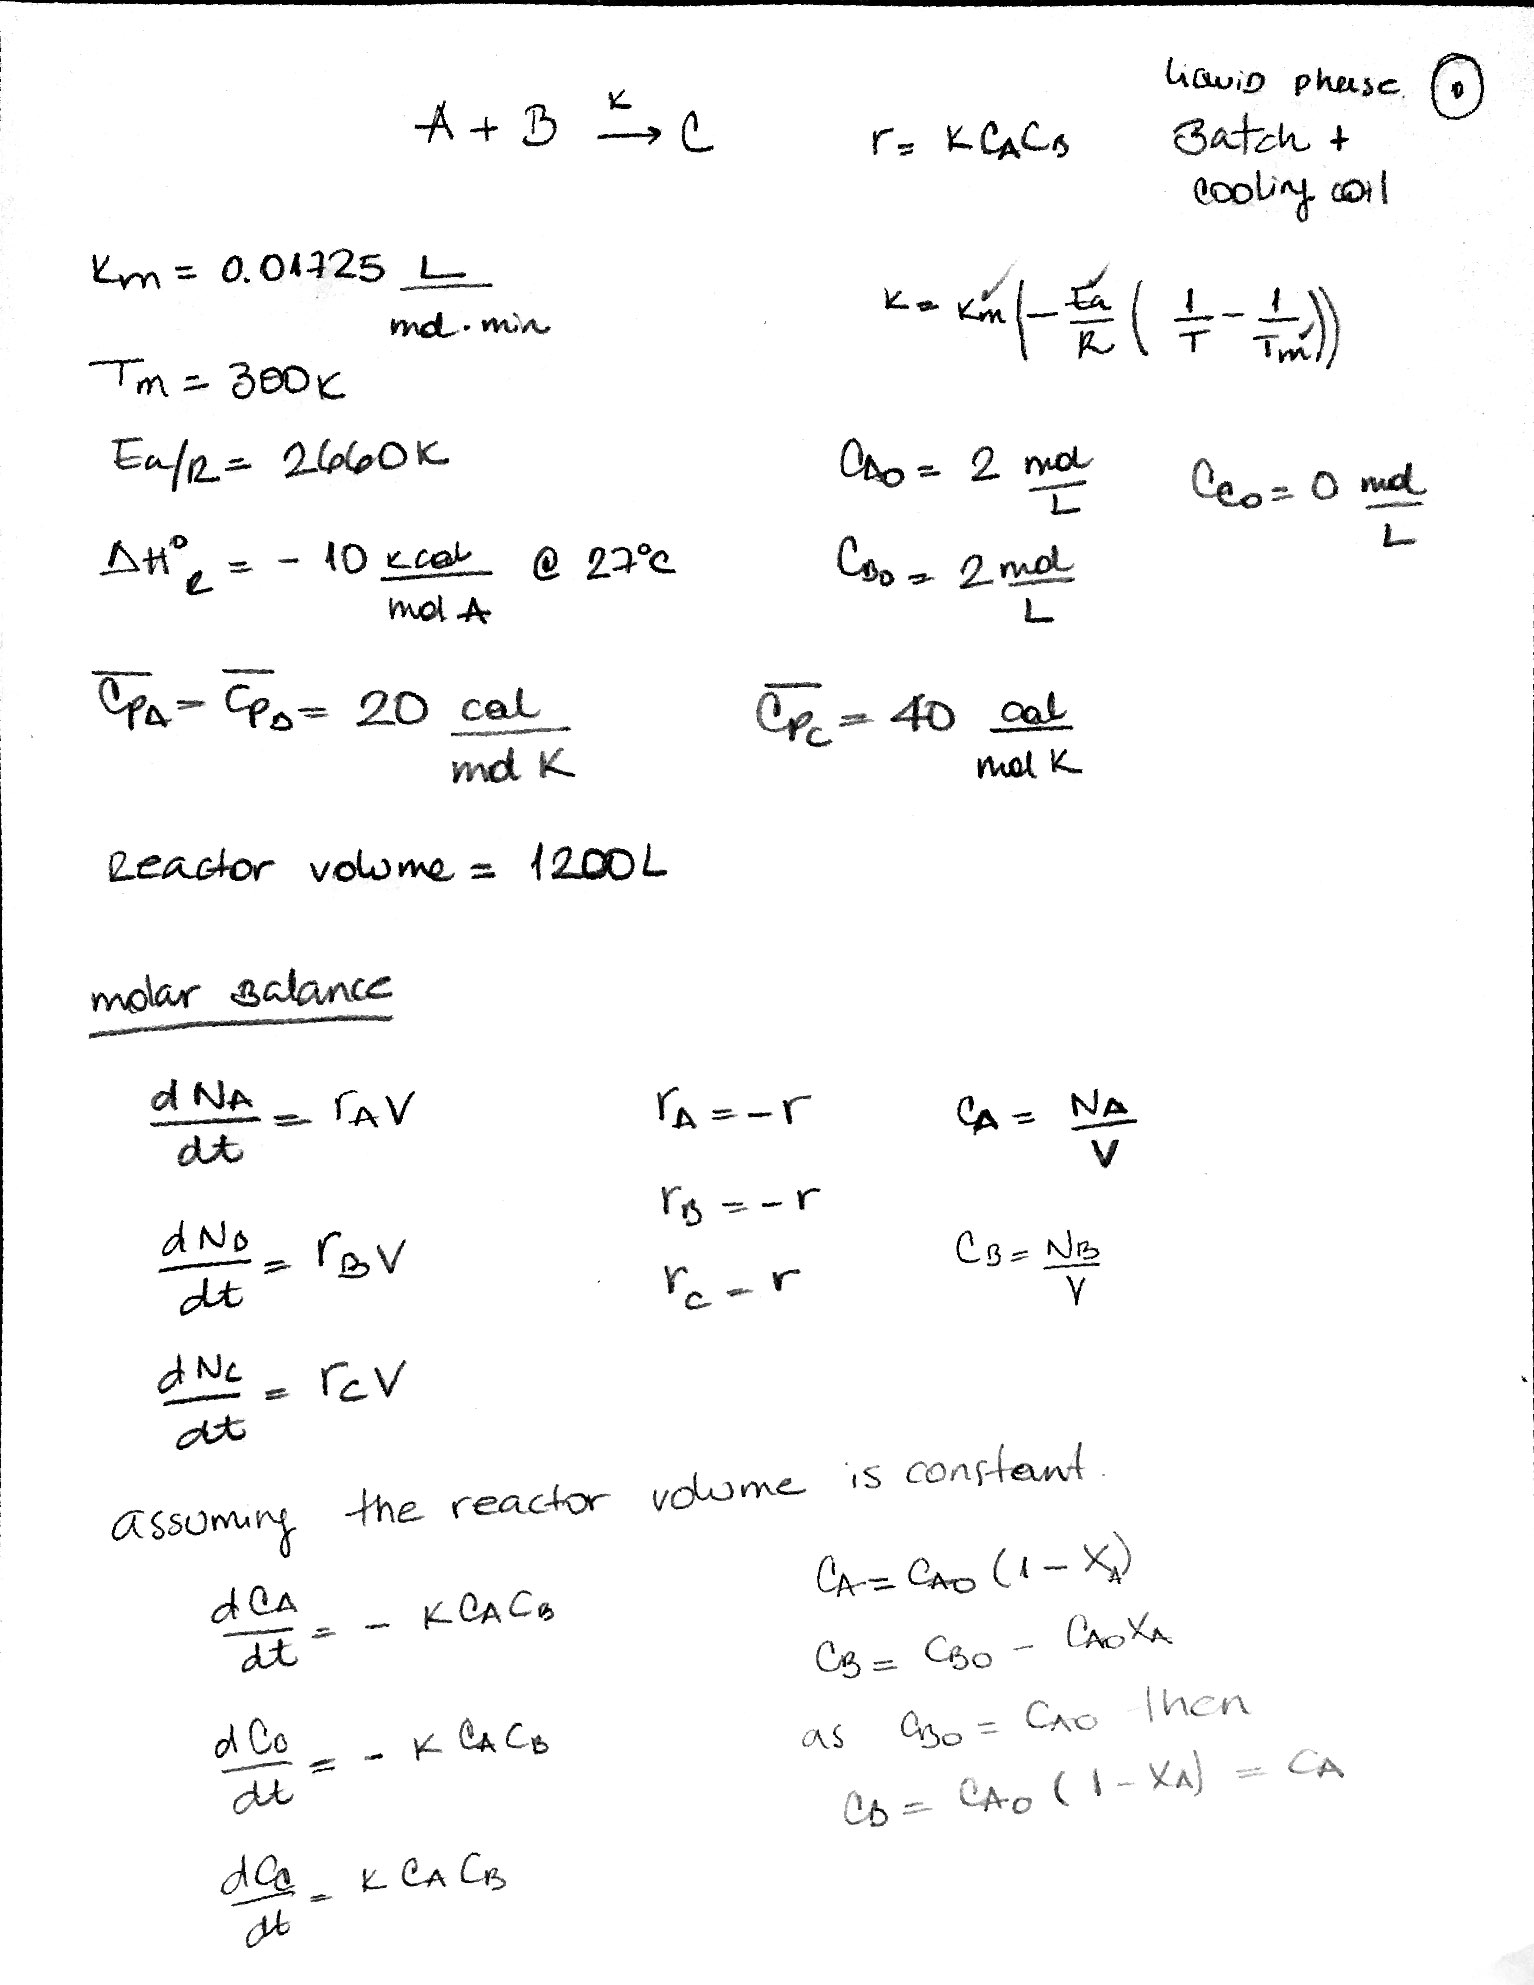 liquid phase. 0
A + B →K C r = K CA CB Batch +
cooling coil
Km = 0.01725 L/mol·min K = Km(-Ea/R (1/T - 1/Tm))
Tm = 300K
Ea/R = 2660K CA0 = 2 mol/L CC0 = 0 mol/L
ΔH°R = -10 kcal/mol A @ 27°C CB0 = 2 mol/L
CPA = CPB = 20 cal/mol K CPC = 40 cal/mol K
Reactor volume = 1200L
molar Balance
dNA/dt = rAV rA = -r CA = NA/V
rB = -r
dNB/dt = rBV CB = NB/V
rC = r
dNC/dt = rCV
assuming the reactor volume is constant.
CA = CA0 (1 - XA)
dCA/dt = - K CA CB
CB = CB0 - CA0XA
as CB0 = CA0 then
dCB/dt = - K CA CB
CB = CA0 (1 - XA) = CA
dCC/dt = K CA CB